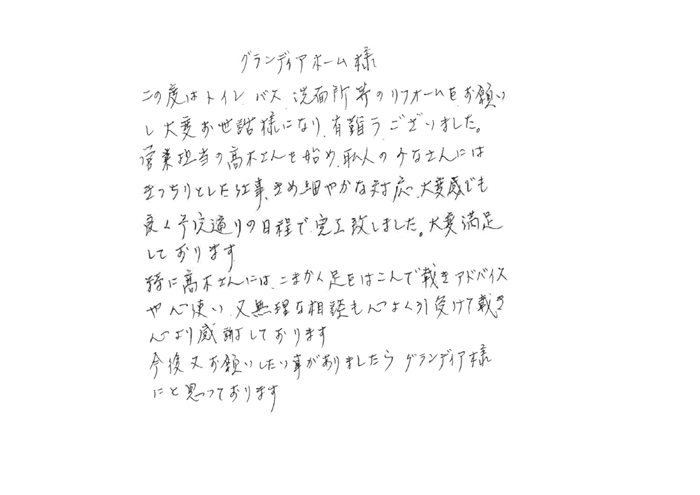 グランディアホーム様
この度はトイレ バス 洗面所等のリフォームをお願い
し大変お世話様になり、有難うございました。
営業担当の高木さんを始め、職人のみなさんには
きっちりとした仕事、きめ細やかな対応、大変感じも
良く予定通りの日程で完工致しました。大変満足
しております
特に高木さんには、こまかく足をはこんで戴きアドバイス
や心使い、又無理な相談も心よく引受けて戴き
心より感謝しております
今後又お願いしたい事がありましたら グランディア様
にと思っております